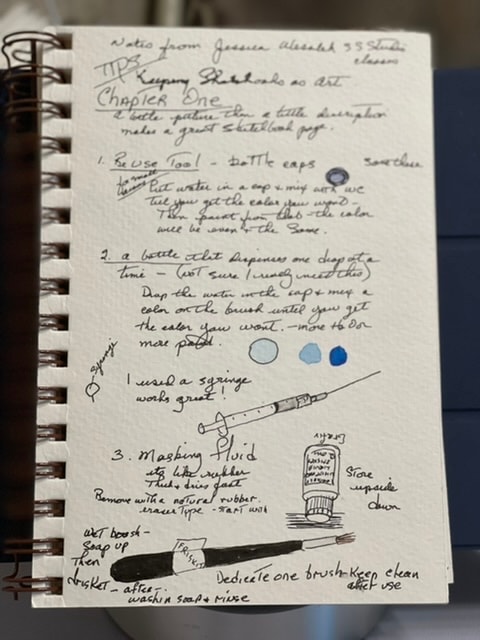 Notes from Jessica SS Studio
classes
TIPS
Keeping Sketchbooks as Art
Chapter One
a little picture then a little description
makes a great sketchbook page.
1. Re Use Tool - bottle caps save these
for small
Put water in a cap & mix with wc
till you get the color you want -
Then paint from that - the color
will be even & the same.
2. a bottle that dispenses one drop at a
time - (not sure I really need this)
Drop the water in the cap & mix a
color on the brush until you get
the color you want. - more H2O or
more paint.
Syringe
I used a syringe
works great!
3. Masking fluid
its like rubber
Thick & dries fast
Remove with a natural rubber
eraser Type - start with
Store
upside
down
Wet brush -
Soap up
Then
frisket - after -
wash in soap & rinse
FRISKIT
Dedicate one brush - Keep clean
after use